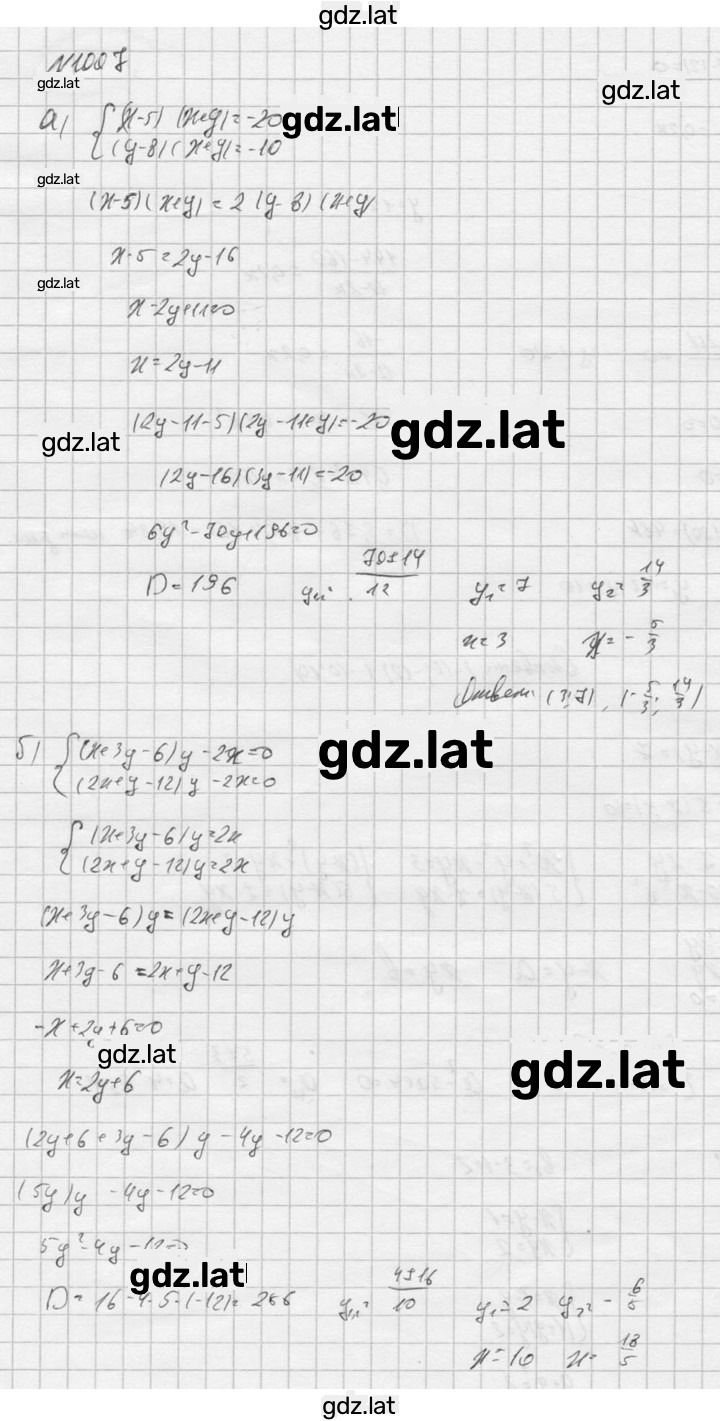 gdz.lat
N1007
gdz.lat
gdz.lat
а) {(x-5) (x+y) = -20
gdz.lat
(y-8) (x+y) = -10
gdz.lat
(x-5) (x+y) = 2 (y-8) (x+y)
x-5 = 2y-16
gdz.lat
x-2y+11=0
x = 2y-11
(2y-11-5)(2y-11+y)=-20
gdz.lat
gdz.lat
(2y-16)(3y-11)=-20
6y²-70y+196=0
D=196 y₁,₂= (70±14)/12 y₁=7 y₂= 14/3
x=3 x= -5/3
Ответ: (3;7), (-5/3; 14/3)
б) {(x+3y-6)y -2x=0
gdz.lat
(2x+y-12)y -2x=0
{(x+3y-6)y=2x
(2x+y-12)y=2x
(x+3y-6)y=(2x+y-12)y
x+3y-6=2x+y-12
-x+2y+6=0
gdz.lat
gdz.lat
x=2y+6
(2y+6+3y-6)y-4y-12=0
(5y)y -4y-12=0
5y²-4y-12=0
gdz.lat
D= 16-4·5·(-12)= 256 y₁,₂= (4±16)/10 y₁=2 y₂= -6/5
x=10 x= 18/5
gdz.lat